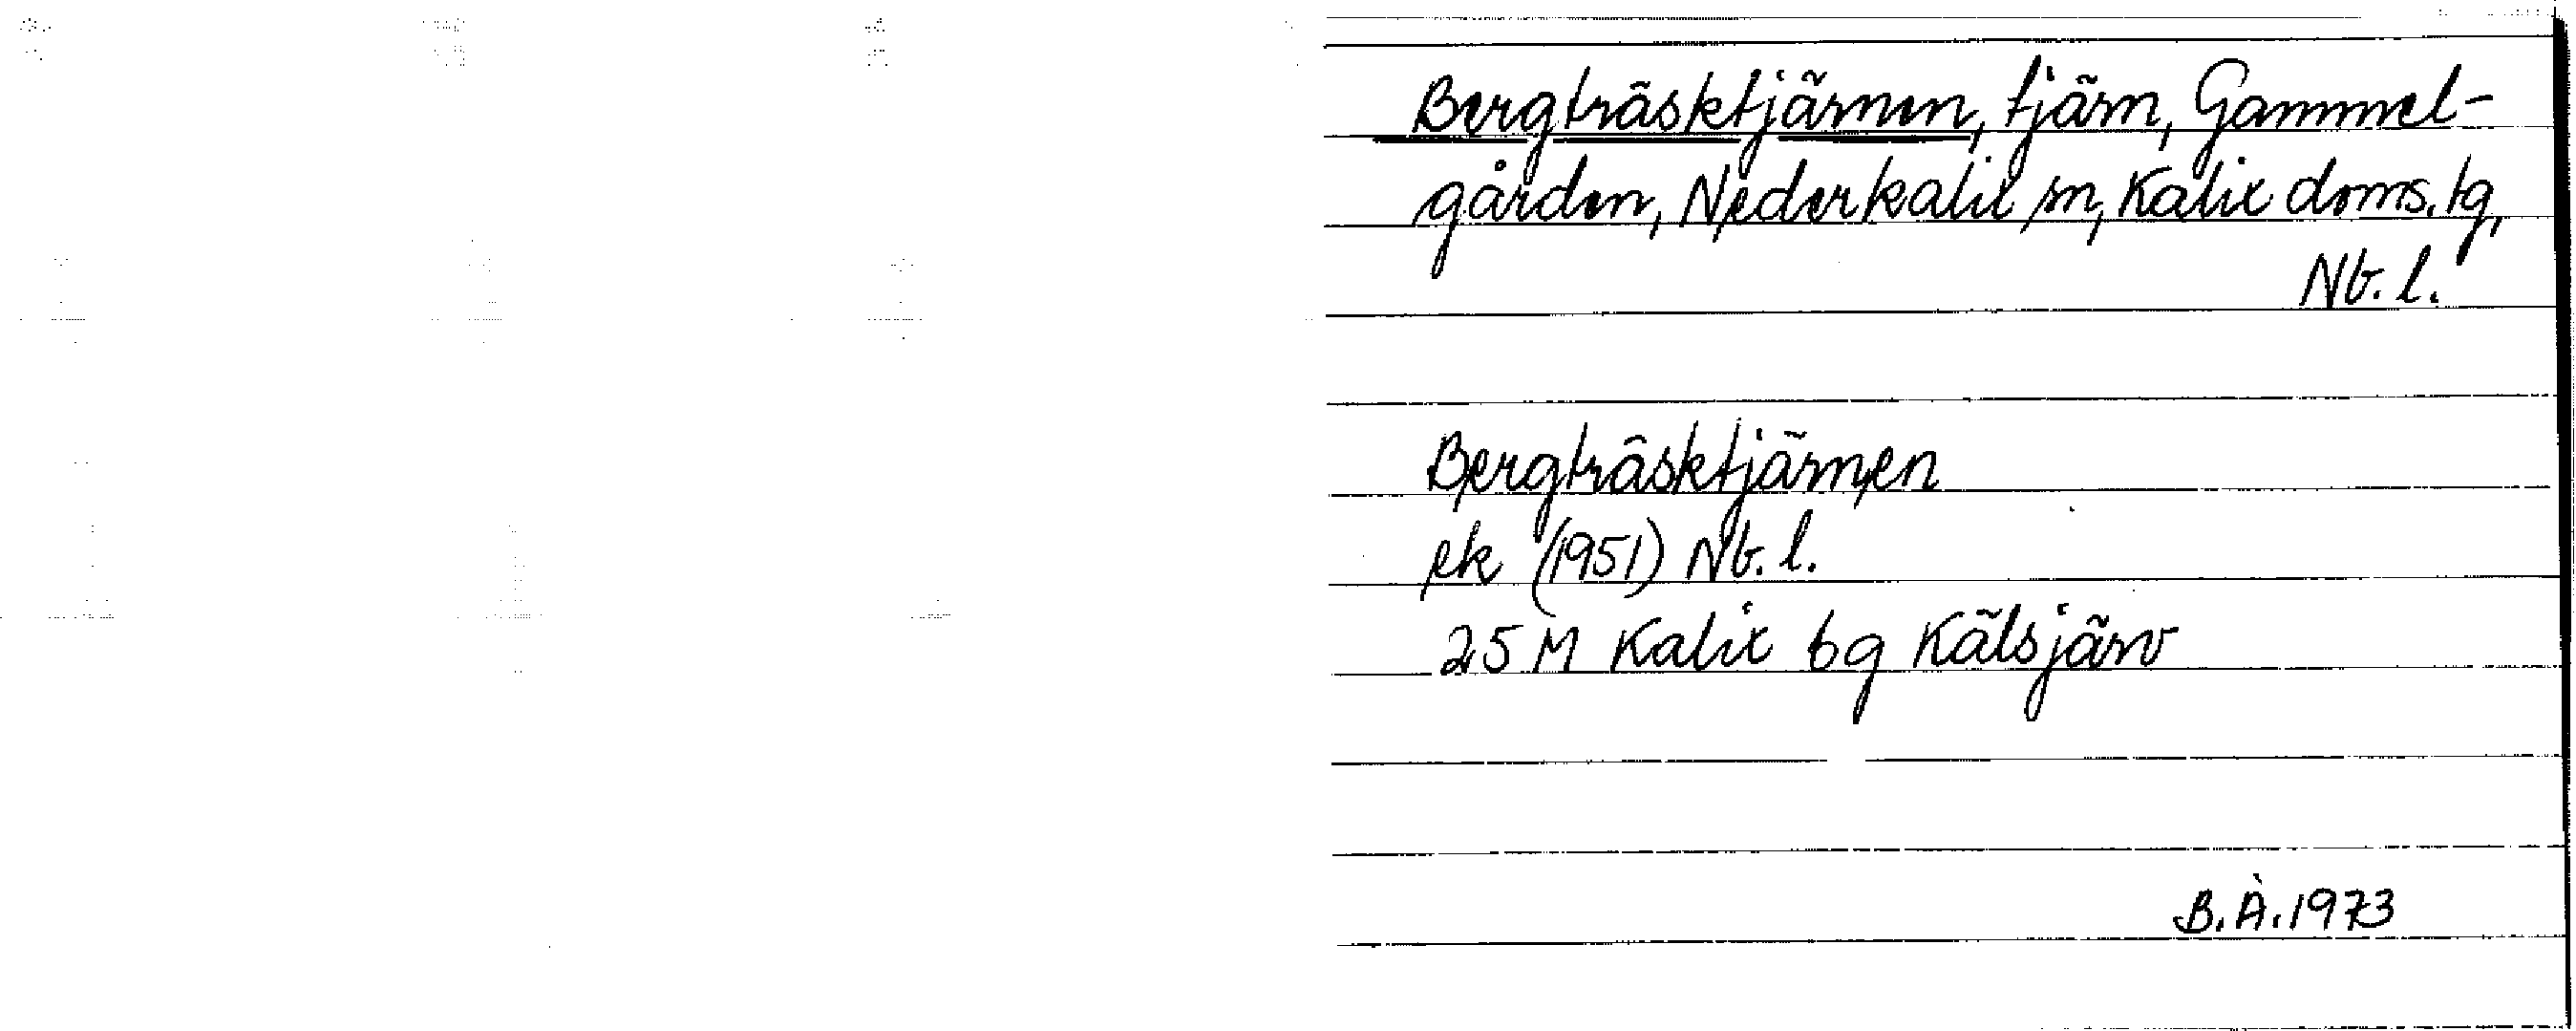 Bergträsktjärnen, tjärn, Gammel-
gården, Nederkalix sn, Kalix doms. tg,
Nb. l.
Bergträsktjärnen
ek (1951) Nb. l.
25 M Kalix 6g Kälsjärv
B. Å. 1973